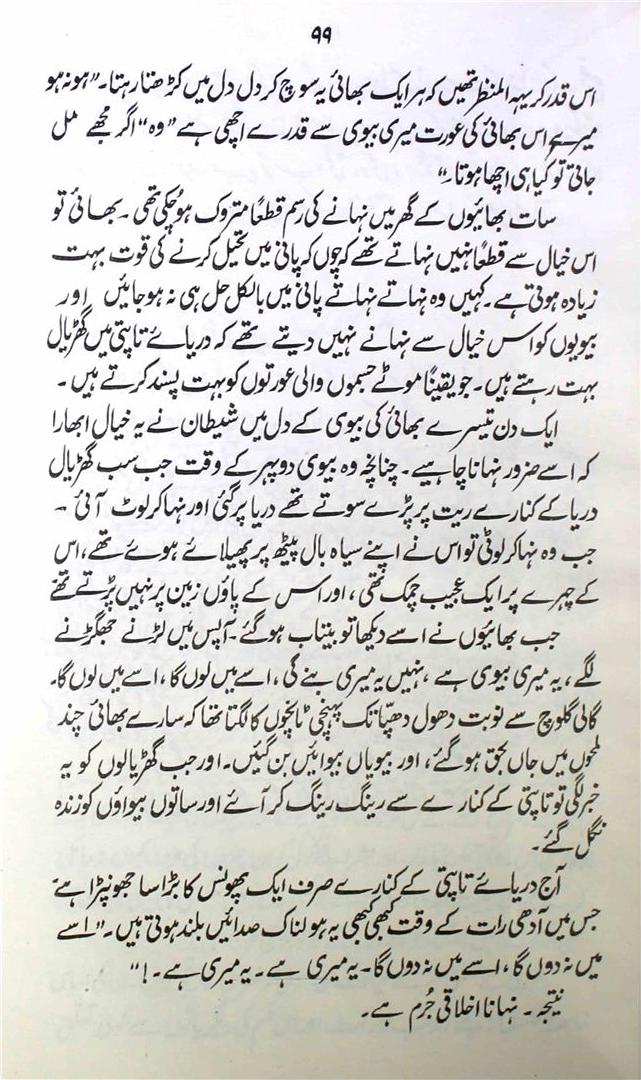 ۹۹
اس قدر کریہہ المنظر تھیں کہ ہر ایک بھائی یہ سوچ کر دل دل میں کڑھتا رہتا۔ "ہو نہ ہو
میرے اس بھائی کی عورت میری بیوی سے قدرے اچھی ہے "وہ" اگر مجھے مل
جاتی تو کیا ہی اچھا ہوتا۔"
سات بھائیوں کے گھر میں نہانے کی رسم قطعاً متروک ہو چکی تھی۔ بھائی تو
اس خیال سے قطعاً نہیں نہاتے تھے کہ چوں کہ پانی میں تحلیل کرنے کی قوت بہت
زیادہ ہوتی ہے۔ کہیں وہ نہاتے نہاتے پانی میں بالکل حل ہی نہ ہو جائیں اور
بیویوں کو اس خیال سے نہانے نہیں دیتے تھے کہ دریائے تاپتی میں گھڑیال
بہت رہتے ہیں۔ جو یقیناً موٹے جسموں والی عورتوں کو بہت پسند کرتے ہیں۔
ایک دن تیسرے بھائی کی بیوی کے دل میں شیطان نے یہ خیال ابھارا
کہ اسے ضرور نہانا چاہیے۔ چنانچہ وہ بیوی دوپہر کے وقت جب سب گھڑیال
دریا کے کنارے ریت پر پڑے سوتے تھے دریا پر گئی اور نہا کر لوٹ آئی۔
جب وہ نہا کر لوٹی تو اس نے اپنے سیاہ بال پیٹھ پر پھیلائے ہوئے تھے، اس
کے چہرے پر ایک عجیب چمک تھی، اور اس کے پاؤں زمین پر نہیں پڑتے تھے
جب بھائیوں نے اسے دیکھا تو بیتاب ہو گئے۔ آپس میں لڑنے جھگڑنے
لگے، یہ میری بیوی ہے، نہیں یہ میری بنے گی، اسے میں لوں گا، اسے میں لوں گا۔
گالی گلوچ سے نوبت دھول دھپّا تک پہنچی طمانچوں کا لگنا تھا کہ سارے بھائی چند
لمحوں میں جاں بحق ہو گئے، اور بیویاں بیوائیں بن گئیں۔ اور جب گھڑیالوں کو یہ
خبر لگی تو تاپتی کے کنارے سے رینگ رینگ کر آئے اور ساتوں بیواؤں کو زندہ
نگل گئے۔
آج دریائے تاپتی کے کنارے صرف ایک پھونس کا بڑا سا جھونپڑا ہے
جس میں آدھی رات کے وقت کبھی کبھی یہ ہولناک صدائیں بلند ہوتی ہیں۔ "اسے
میں نہ دوں گا، اسے میں نہ دوں گا۔ یہ میری ہے۔ یہ میری ہے۔!"
نتیجہ۔ نہانا اخلاقی جُرم ہے۔